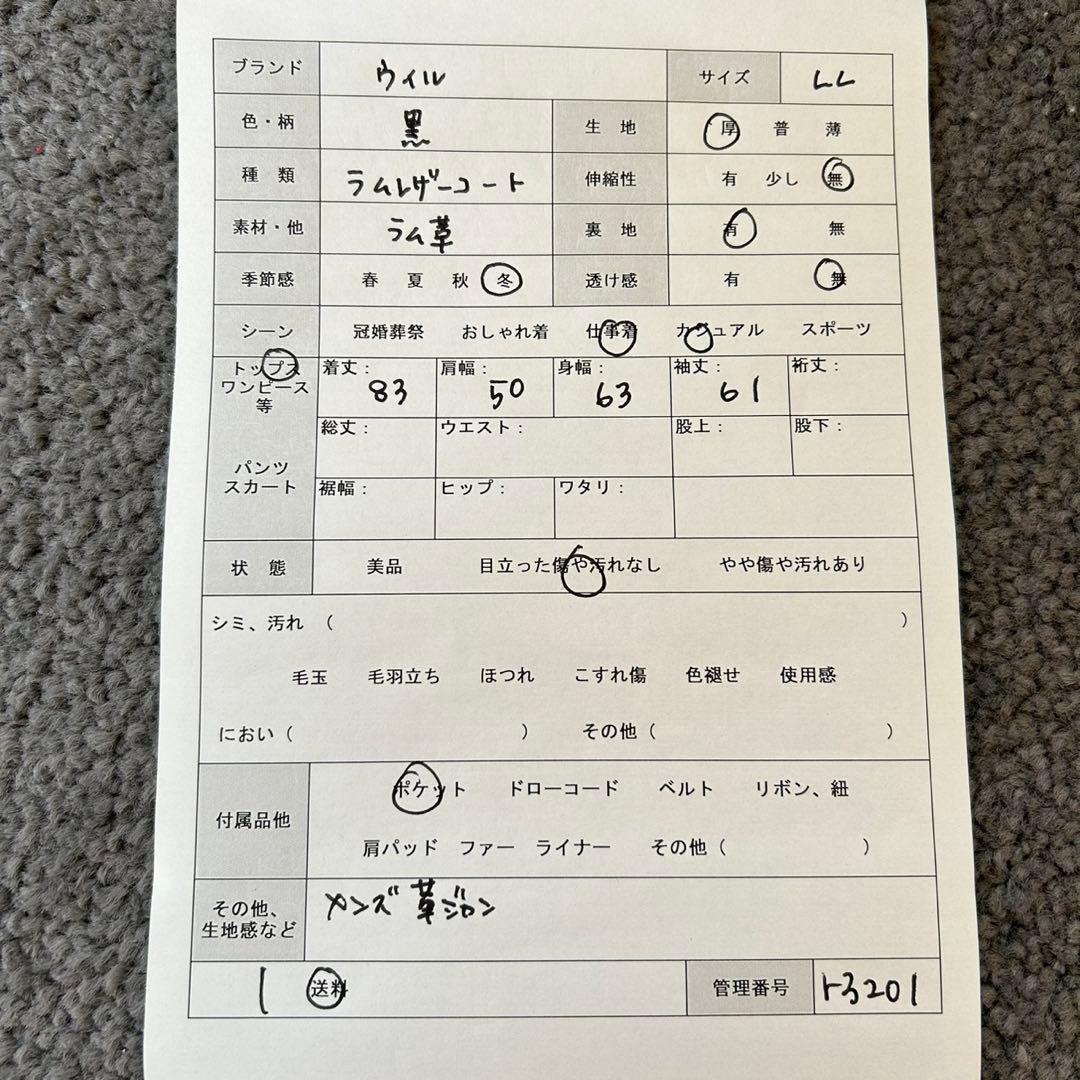 ブランド ウィル サイズ LL
色・柄 黒 生 地 厚 普 薄
種 類 ラムレザーコート 伸縮性 有 少し 無
素材・他 ラム革 裏 地 有 無
季節感 春 夏 秋 冬 透け感 有 無
シーン 冠婚葬祭 おしゃれ着 仕事着 カジュアル スポーツ
トップス
ワンピース
等
着丈: 83 肩幅: 50 身幅: 63 袖丈: 61 裄丈:
パンツ
スカート
総丈: ウエスト: 股上: 股下:
裾幅: ヒップ: ワタリ:
状 態 美品 目立った傷や汚れなし やや傷や汚れあり
シミ、汚れ ( )
毛玉 毛羽立ち ほつれ こすれ傷 色褪せ 使用感
におい ( ) その他 ( )
付属品他 ポケット ドローコード ベルト リボン、紐
肩パッド ファー ライナー その他 ( )
その他、
生地感など
メンズ 革ジャン
1 送料 管理番号 ト3201